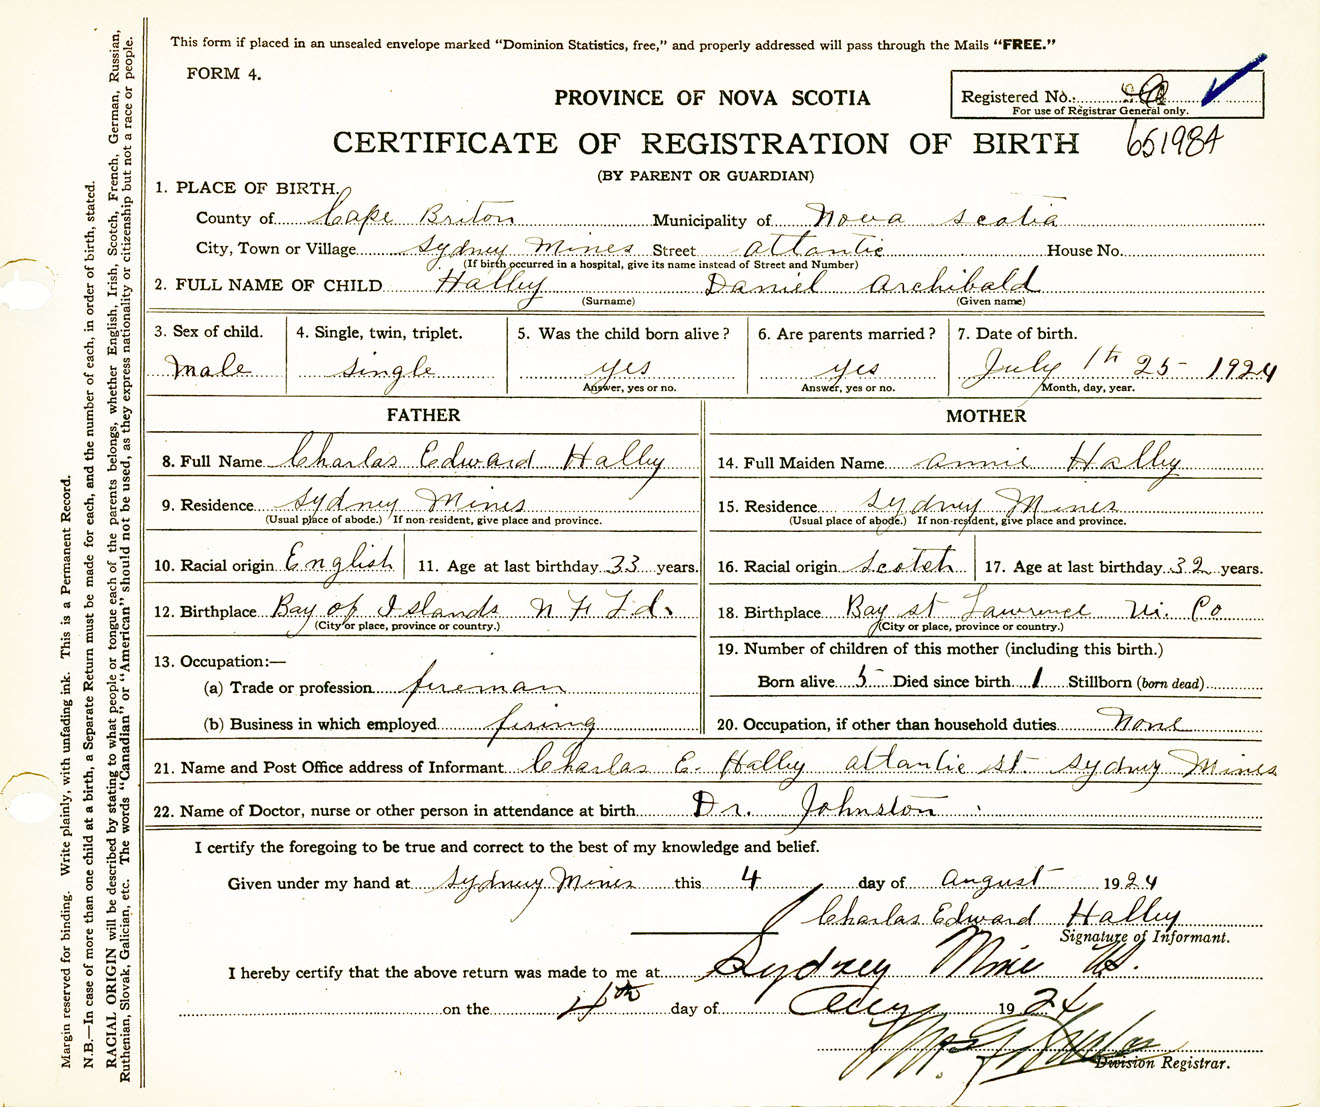 This form if placed in an unsealed envelope marked "Dominion Statistics, free," and properly addressed will pass through the Mails "FREE."
FORM 4.
PROVINCE OF NOVA SCOTIA
Registered No.:
For use of Registrar General only.
CERTIFICATE OF REGISTRATION OF BIRTH 651984
(BY PARENT OR GUARDIAN)
1. PLACE OF BIRTH.
County of Cape Briton Municipality of Nova Scotia
City, Town or Village Sydney Mines Street Attlantic House No.
(If birth occurred in a hospital, give its name instead of Street and Number)
2. FULL NAME OF CHILD Halley Daniel Archibald
(Surname) (Given name)
3. Sex of child. 4. Single, twin, triplet. 5. Was the child born alive? 6. Are parents married? 7. Date of birth.
Male Single yes yes July 1th 25 1924
Answer, yes or no. Answer, yes or no. Month, day, year.
FATHER MOTHER
8. Full Name Charlas Edward Halley 14. Full Maiden Name Annie Halley
9. Residence Sydney Mines 15. Residence Sydney Mines
(Usual place of abode.) If non-resident, give place and province. (Usual place of abode.) If non-resident, give place and province.
10. Racial origin English 11. Age at last birthday 33 years. 16. Racial origin Scotch 17. Age at last birthday 32 years.
12. Birthplace Bay of Islands N F Ld. 18. Birthplace Bay st Lawrence Co
(City or place, province or country.) (City or place, province or country.)
13. Occupation:— 19. Number of children of this mother (including this birth.)
(a) Trade or profession fireman Born alive 5 Died since birth 1 Stillborn (born dead)
(b) Business in which employed firing 20. Occupation, if other than household duties None
21. Name and Post Office address of Informant Charlas E. Halley Attlantic St. Sydney Mines
22. Name of Doctor, nurse or other person in attendance at birth Dr. Johnston
I certify the foregoing to be true and correct to the best of my knowledge and belief.
Given under my hand at Sydney Mines this 4 day of August 1924
Charlas Edward Halley
Signature of Informant.
I hereby certify that the above return was made to me at Sydney Mine
on the 4th day of Aug 1924
Division Registrar.
Margin reserved for binding. Write plainly, with unfading ink. This is a Permanent Record.
N.B.—In case of more than one child at a birth, a Separate Return must be made for each, and the number of each, in order of birth, stated.
RACIAL ORIGIN will be described by stating to what people or tongue each of the parents belongs, whether English, Irish, Scotch, French, German, Russian,
Ruthenian, Slovak, Galician, etc. The words "Canadian" or "American" should not be used, as they express nationality or citizenship but not a race or people.